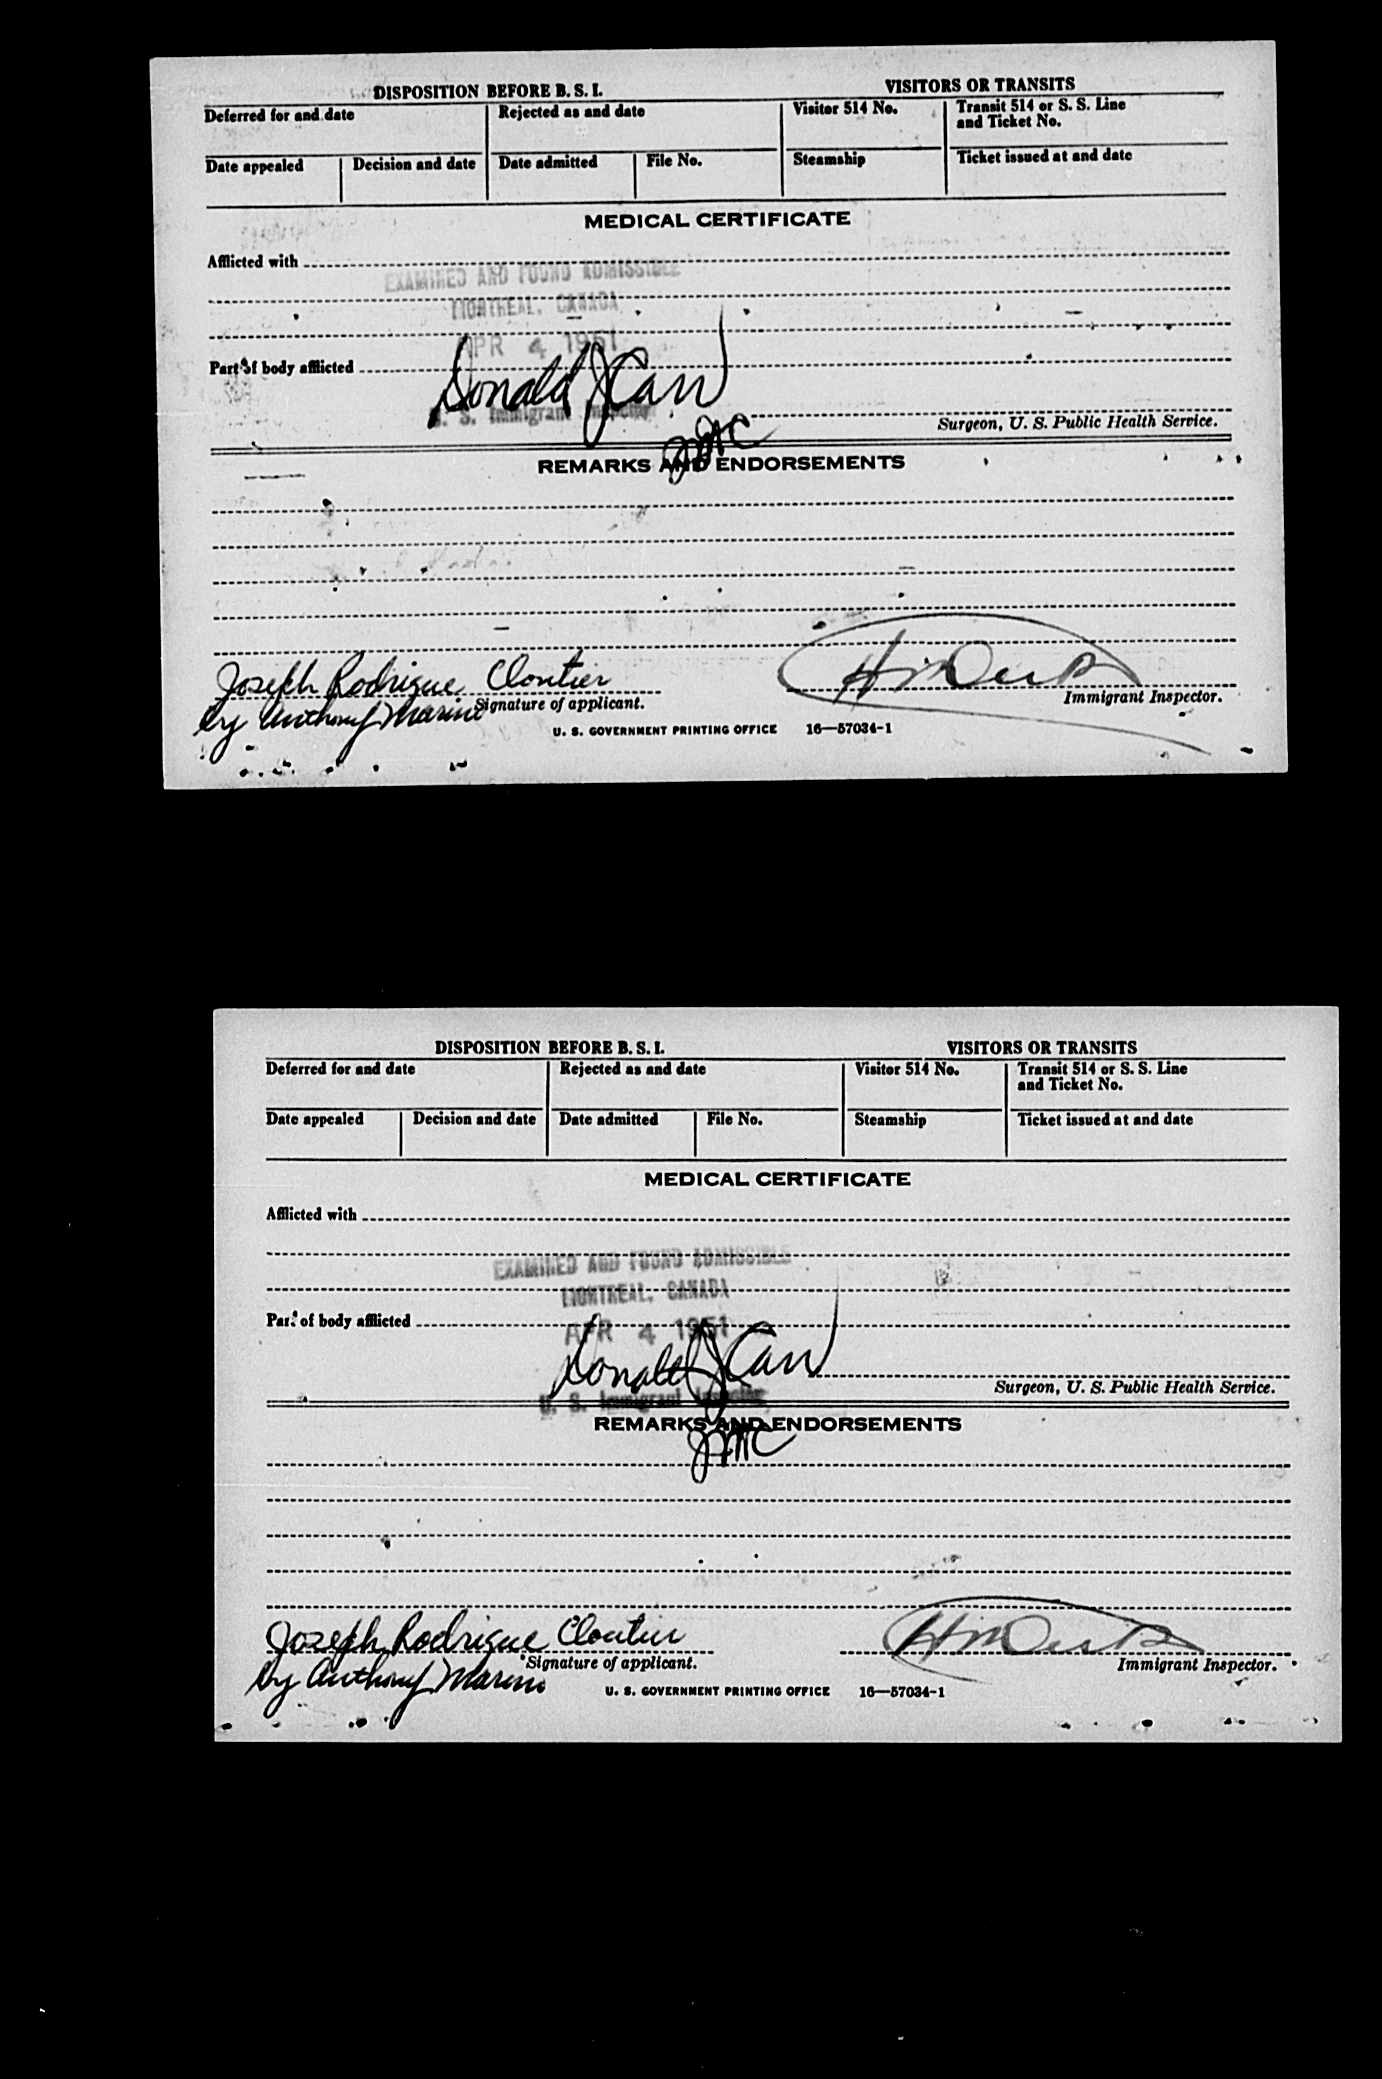 DISPOSITION BEFORE B. S. I. VISITORS OR TRANSITS
Deferred for and date Rejected as and date Visitor 514 No. Transit 514 or S. S. Line
and Ticket No.
Date appealed Decision and date Date admitted File No. Steamship Ticket issued at and date
MEDICAL CERTIFICATE
Afflicted with
EXAMINED AND FOUND ADMISSIBLE
MONTREAL, CANADA
APR 4 1951
Part of body afflicted
Donald J Carr
U. S. Immigrant Inspector
Surgeon, U. S. Public Health Service.
REMARKS AND ENDORSEMENTS
Joseph Rodrigue Cloutier
by Anthony Marino Signature of applicant. Immigrant Inspector.
U. S. GOVERNMENT PRINTING OFFICE 16—57034-1
DISPOSITION BEFORE B. S. I. VISITORS OR TRANSITS
Deferred for and date Rejected as and date Visitor 514 No. Transit 514 or S. S. Line
and Ticket No.
Date appealed Decision and date Date admitted File No. Steamship Ticket issued at and date
MEDICAL CERTIFICATE
Afflicted with
EXAMINED AND FOUND ADMISSIBLE
MONTREAL, CANADA
Part of body afflicted
APR 4 1951
Donald J Carr
U. S. Immigrant Inspector
Surgeon, U. S. Public Health Service.
REMARKS AND ENDORSEMENTS
Joseph Rodrigue Cloutier
by Anthony Marino Signature of applicant. Immigrant Inspector.
U. S. GOVERNMENT PRINTING OFFICE 16—57034-1